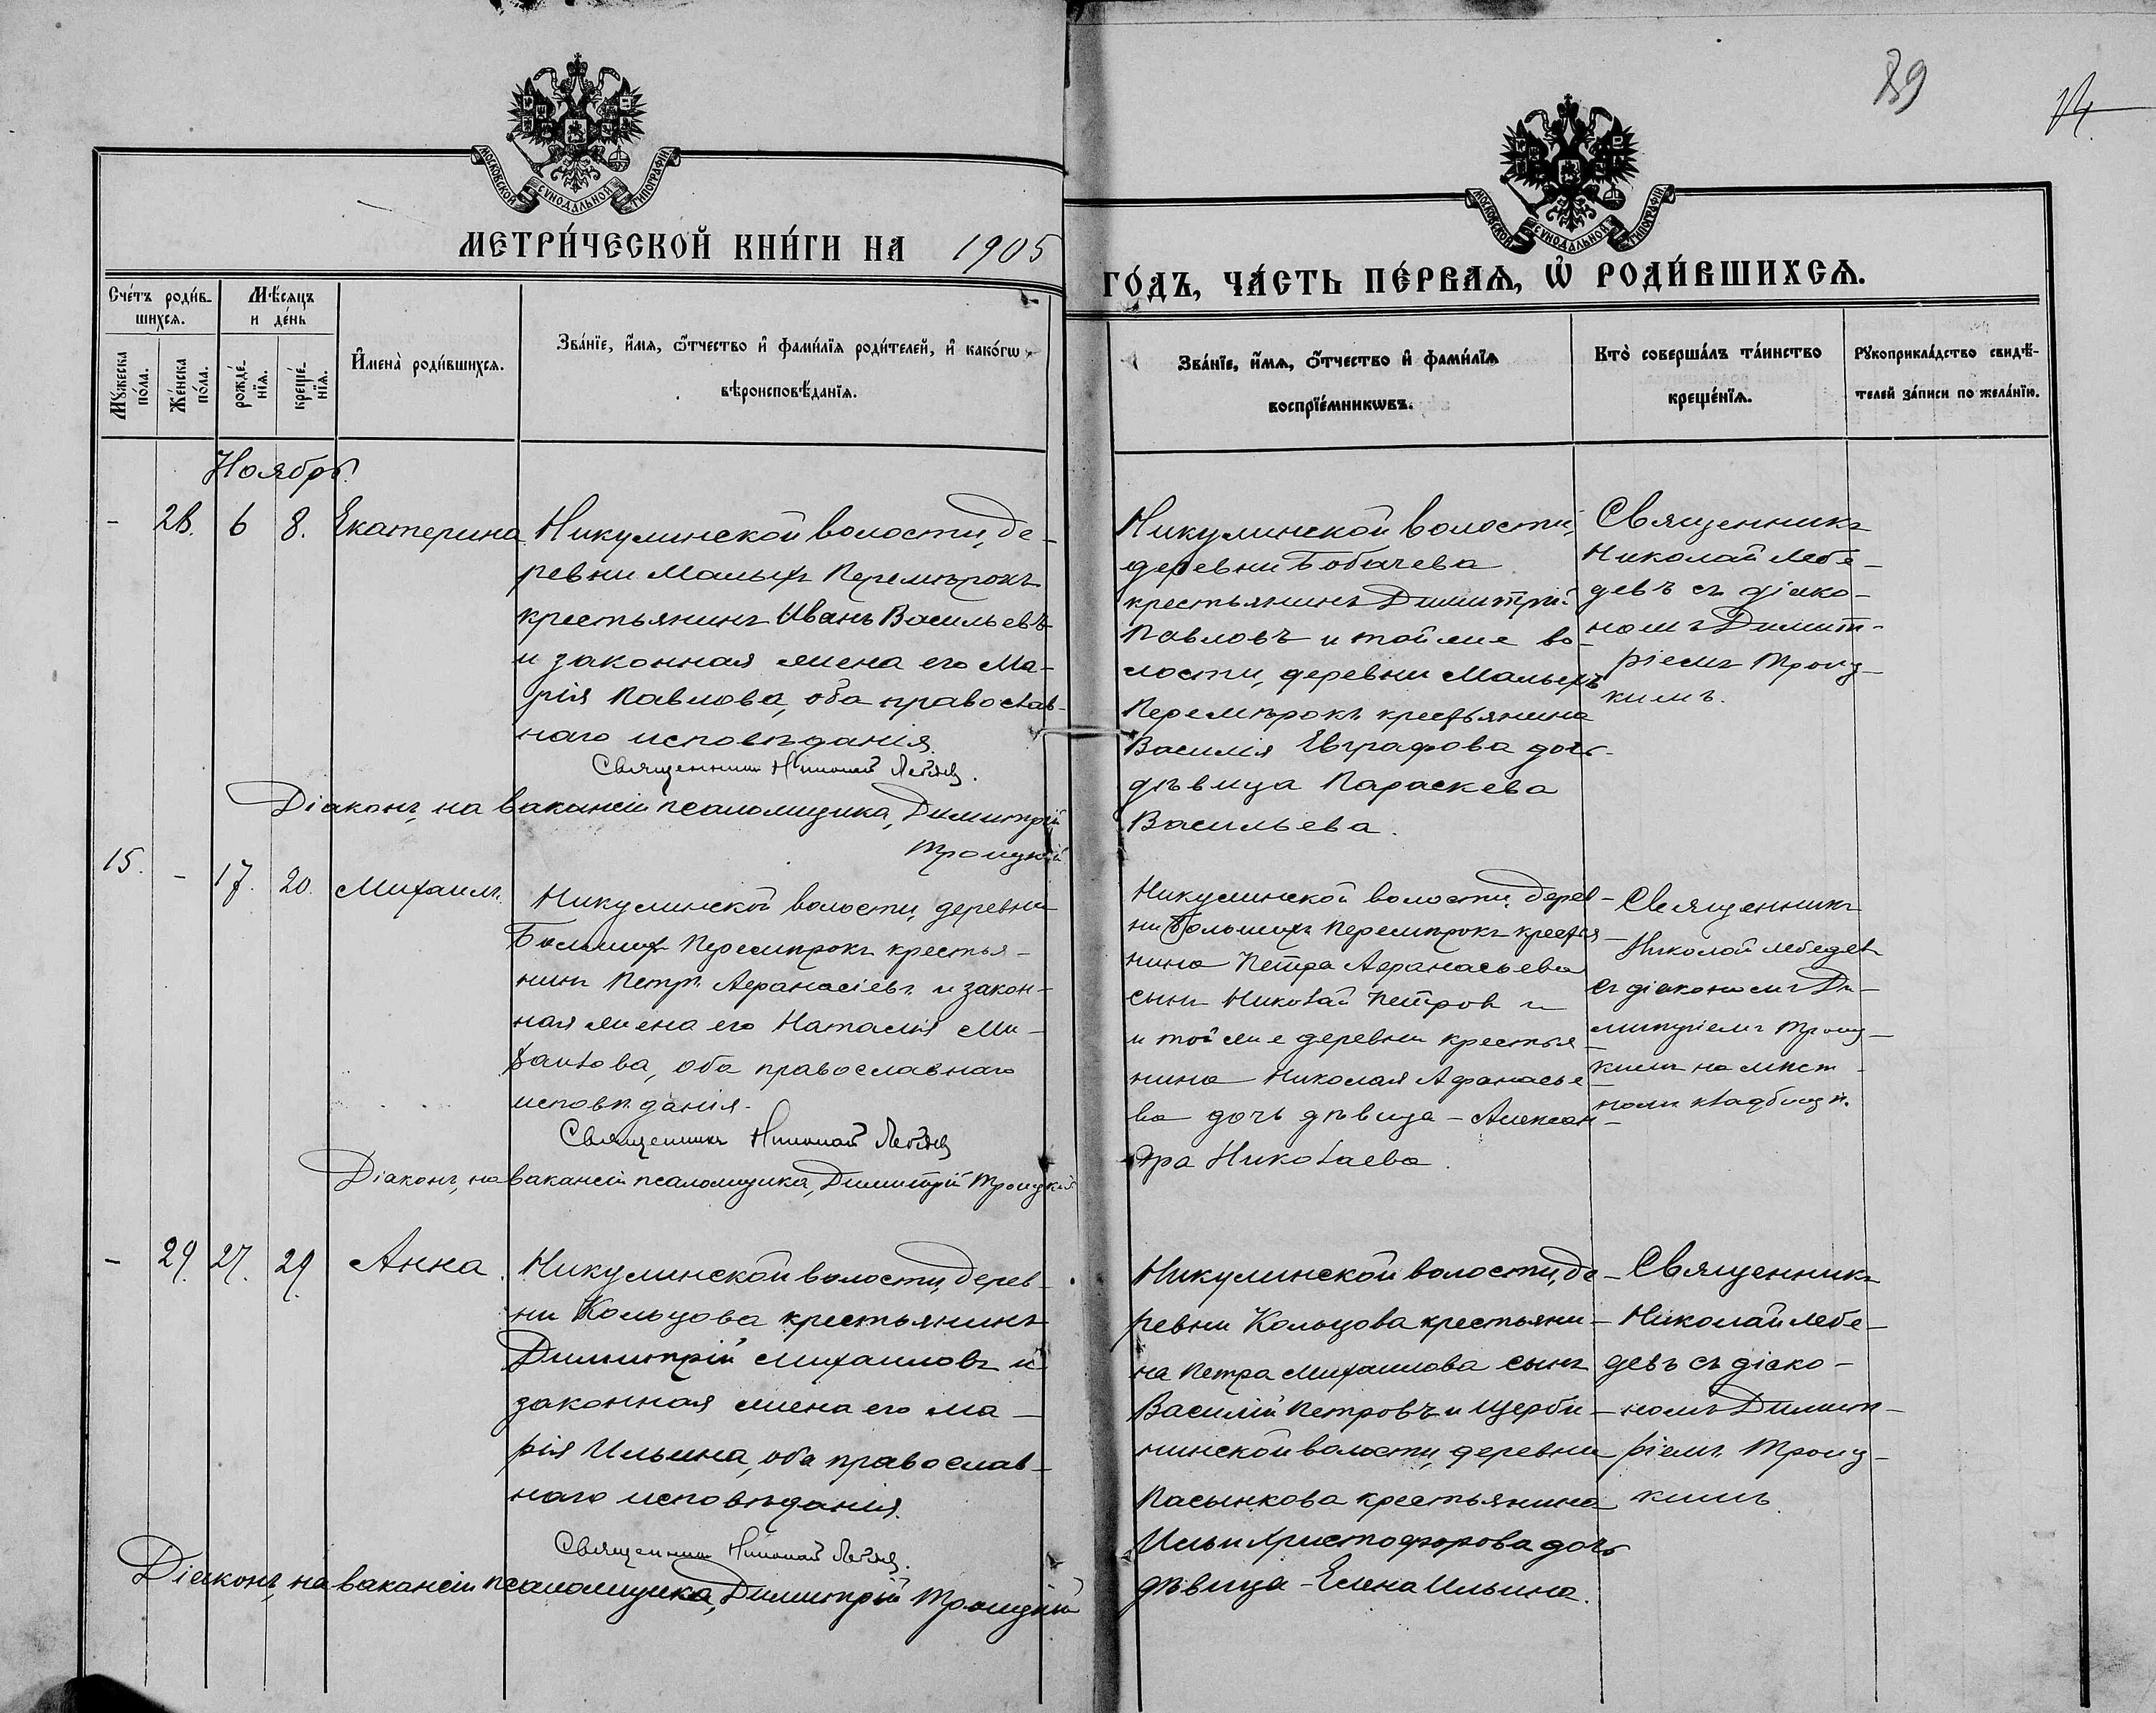 89
14
МОСКОВСКОЙ СѴНОДАЛЬНОЙ ТИПОГРАФІИ
МОСКОВСКОЙ СѴНОДАЛЬНОЙ ТИПОГРАФІИ
МЕТРИ́ЧЕСКОЙ КНИ́ГИ НА 1905
ГО́ДЪ, ЧА́СТЬ ПЕ́РВАѦ, Ѡ҆ РОДИ́ВШИХСѦ.
Сче́тъ роди́в-
шихсѧ.
Мѣ́сѧцъ
и де́нь
Мꙋ́жеска по́ла.
Же́нска по́ла.
рожде́-
нїѧ.
креще́-
нїѧ.
И҆мена̀ роди́вшихсѧ.
Зва́нїе, и҆́мѧ, ѻ҆́тчество и҆ фами́лїѧ роди́телей, и҆ како́гѡ
вѣроисповѣ́данїѧ.
Зва́нїе, и҆́мѧ, ѻ҆́тчество и҆ фами́лїѧ
воспрїе́мникѡвъ.
Кто̀ соверша́лъ та́инство
креще́нїѧ.
Рꙋкоприкла́дство свидѣ́-
телей за́писи по жела́нїю.
Ноябрь
- 28. 6 8. Екатерина
Никулинской волости, де-
ревни Малыхъ Перемѣрокъ
крестьянинъ Иванъ Васильевъ
и законная жена его Ма-
рія Павлова, оба православ-
наго исповѣданія.
Священникъ Николай Лебедев.
Діаконъ, на вакансіи псаломщика, Димитрій
Троицкій
Никулинской волости,
деревни Бобачева
крестьянинъ Димитрій
Павловъ и той же во-
лости, деревни Малыхъ
Перемѣрокъ крестьянина
Василія Евграфова дочь
дѣвица Параскева
Васильева.
Священникъ
Николай Лебе-
девъ съ діако-
номъ Димит-
ріемъ Троиц-
кимъ.
15. - 17. 20. Михаилъ.
Никулинской волости, деревни
Большихъ Перемѣрокъ крестья-
нинъ Петръ Афанасіевъ и закон-
ная жена его Наталія Ми-
хаилова, оба православнаго
исповѣданія.
Священникъ Николай Лебедев
Діаконъ, на вакансіи псаломщика, Димитрій Троицкій
Никулинской волости, дерев-
ни Большихъ Перемѣрокъ крестья-
нина Петра Афанасьева
сынъ Николай Петровъ
и той же деревни крестья-
нина Николая Афанасье-
ва дочь дѣвица - Алексан-
дра Николаева.
Священникъ
Николай Лебедевъ
съ діакономъ Ди-
митріемъ Троиц-
кимъ на мѣст-
номъ кладбищѣ.
- 29. 27. 29. Анна.
Никулинской волости, дерев-
ни Кольцова крестьянинъ
Димитрій Михаиловъ и
законная жена его Ма-
рія Ильина, оба православ-
наго исповѣданія.
Священникъ Николай Лебедев.
Діаконъ, на вакансіи псаломщика, Димитрій Троицкій
Никулинской волости, де-
ревни Кольцова крестьяни-
на Петра Михаилова сынъ
Василій Петровъ и Щерби-
нинской волости, деревни
Пасынкова крестьянина
Ильи Христофорова дочь
дѣвица - Елена Ильина.
Священникъ
Николай Лебе-
девъ съ діако-
номъ Димит-
ріемъ Троиц-
кимъ.